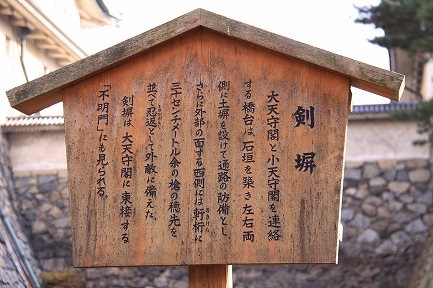 剣塀
大天守閣と小天守閣を連絡
する橋台は、石垣を築き左右両
側に土塀を設けて通路の防備とし、
さらに外部の面する西側には軒桁に
のきげた
三十センチメートル余の槍の穂先を
並べて忍返として外敵に備えた。
剣塀は、大天守閣に東接する
「不明門」にも見られる。